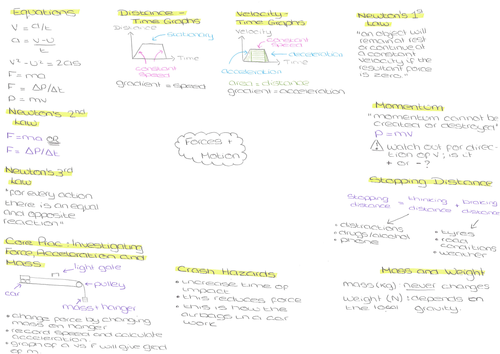 Equations
V = d/t
a = V-U
t
V² - U² = 2as
F = ma
F = ΔP/Δt
P = mv
Newton's 2nd
Law
F = ma OR
F = ΔP/Δt
Newton's 3rd
Law
"for every action
there is an equal
and opposite
reaction"
Core Prac: Investigating
Force, Acceleration and
Mass
light gate
pulley
car
mass + hanger
• change force by changing
mass on hanger
• record speed and calculate
acceleration
• graph of a vs F will give grad
of m
Distance -
Time Graphs
Distance
stationary
Time
constant
speed
gradient = speed
Velocity -
Time Graphs
Velocity
constant
speed
deceleration
Time
acceleration
area = distance
gradient = acceleration
Forces +
Motion
Crash Hazards
• increase time of
impact
• this reduces force
• this is how the
airbags in a car
work
Newton's 1st
Law
"an object will
remain at rest
or continue at
a constant
velocity if the
resultant force
is zero"
Momentum
"momentum cannot be
created or destroyed"
P = mv
! Watch out for direc-
tion of V; is it
+ or - ?
Stopping Distance
stopping distance = thinking distance + braking distance
• distractions
• drugs/alcohol
• phone
• tyres
• road
conditions
• weather
Mass and Weight
mass (kg): never changes
weight (N): depends on
the local gravity